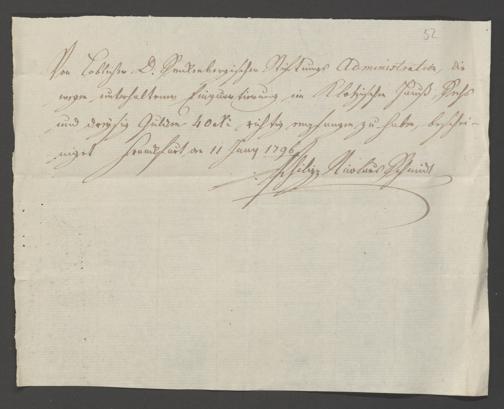 52
Von Löblicher D. Senckenbergischen Stiftungs Administration, die
wegen unterhaltener Einquartierung im Hauß Sechs
und dreysig Gulden 40 Xr. richtig empfangen zu haben, beschei-
niget Frankfurt den 11 Juny 1796
Philipp Nicolaus Schmidt